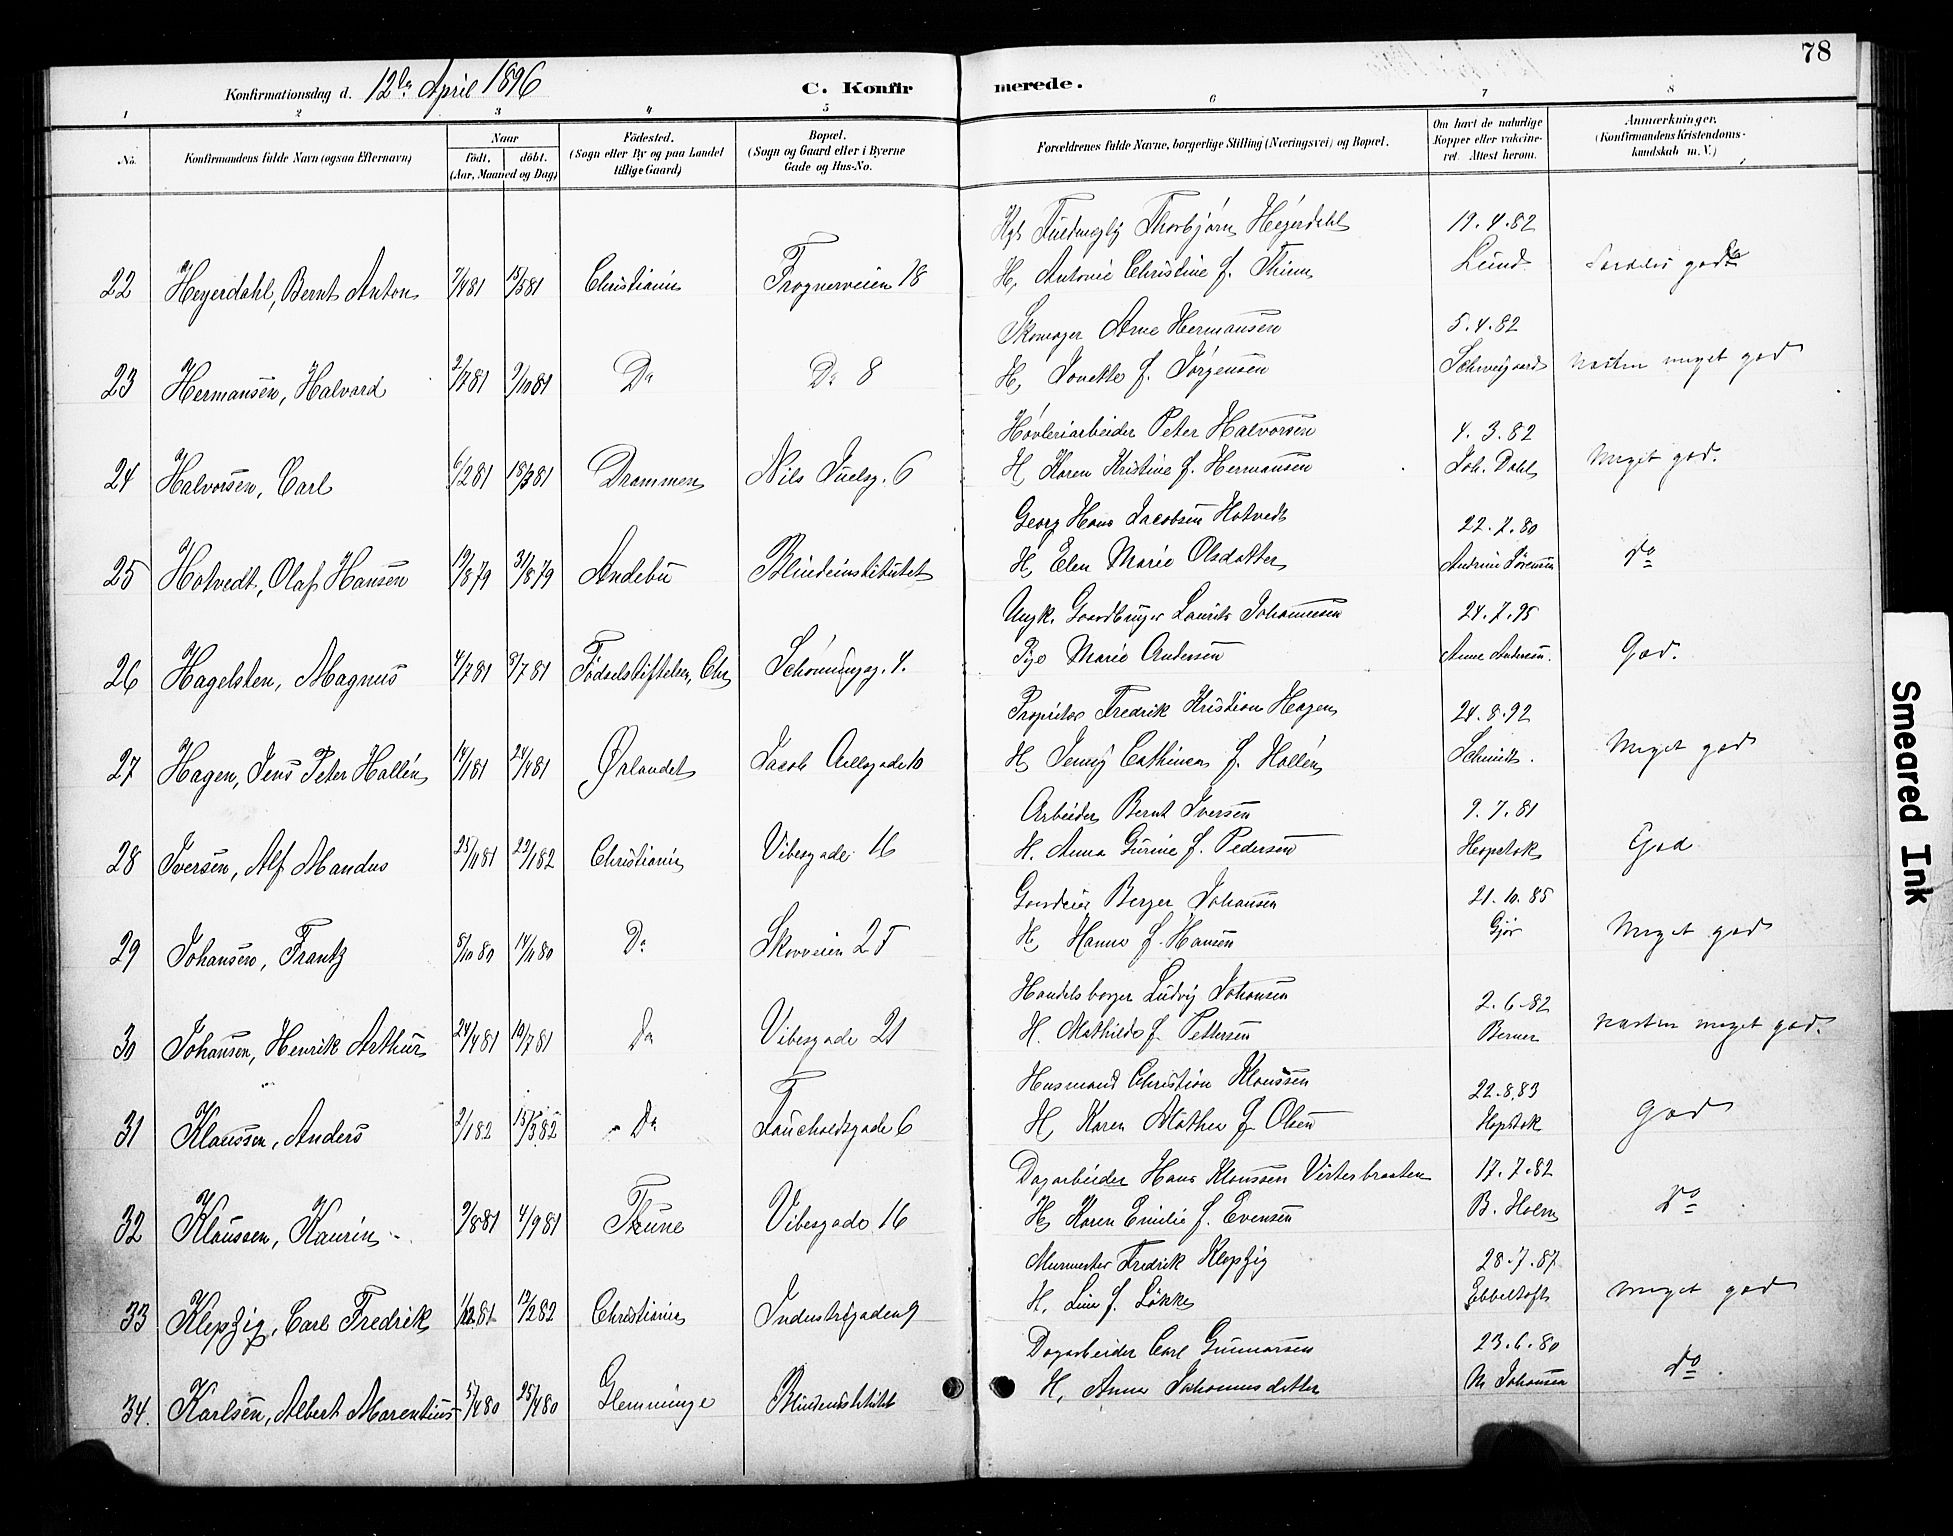 78
Konfirmationsdag d. 12te April 1896 C. Konfirmerede.
1 2 3 4 5 6 7 8
No.
Konfirmandens fulde Navn (ogsaa Efternavn)
Naar
födt. döbt.
(Aar, Maaned og Dag)
Födested.
(Sogn eller By og paa Landet
tillige Gaard)
Bopæl.
(Sogn og Gaard eller i Byerne
Gade og Hus-No.
Forældrenes fulde Navne, borgerlige Stilling (Næringsvei) og Bopæl.
Om havt de naturlige
Kopper eller vakcine-
ret. Attest herom.
Anmærkninger.
(Konfirmandens Kristendoms-
kundskab m. V.)
Thorbjørn Heyerdahl 19.4.82
22 Heyerdahl, Bernt Anton 7/4 81 15/5 81 Christiania Frognerveien 18 H, Antonie Christine f. Lund godt
Skomager Arne Hermansen 5.4.82
23 Hermansen, Halvard 2/7 81 9/10 81 Do Do 8 H, f. Jörgensen Schweigaard næsten meget god
Høvleriarbeider Peter Halvorsen 4.3.82
24 Halvorsen, Carl 6/2 81 18/3 81 Drammen Nils Juelsg. 6 H Karen Kristine f. Hermansen Joh. Dahl Meget god.
Georg Hans Jacobsen Hotvedt 22.7.80
25 Hotvedt, Olaf Hansen 19/8 79 31/8 79 Andebu Blindeinstitutet H, Elen Marie Olsdatter Andrine Sørensen do
Ungk. Gaardbruger Laurits Johannesen 24.7.95
26 Hagelsten, Magnus 4/7 81 8/7 81 Fødselstiftelsen, Chr Schøningsg. 4. Pige Marie Andersen Anne Andersen. God.
Proprietær Fredrik Kristian Hagen 24.8.92
27 Hagen, Jens Peter Hallén 14/1 81 24/4 81 Ørlandet Jacob Aallsgade 10 H, Jenny Cathinca f. Hallén Schmidt. Meget god
Arbeider Bernt Iversen 9.7.81
28 Iversen, Alf Mandus 25/4 81 29/1 82 Christiania Vibesgade 16 H. Anna Gurine f. Pedersen Hopstok God
Gaardeier Berger Johansen 21.10.85
29 Johansen, Frantz 5/10 80 14/11 80 Do Skovveien 25 H, Hanna f. Hansen Gjør Meget god
Handelsborger Ludvig Johansen 2.6.82
30 Johansen, Henrik Arthur 24/4 81 10/7 81 Do Vibesgade 21 H. Mathilde f. Pettersen Berner næsten meget god.
Husmand Christian Klaussen 22.8.83
31 Klaussen, Anders 2/1 82 15/3 82 Do Fauchaldsgade 6 H, Karen Mathea f. Olsen Hopstok God
Dagarbeider Hans Klaussen Visterbraaten 17.7.82
32 Klaussen, Kaurin 9/8 81 4/9 81 Thune Vibesgade 16 H, Karen Emilie f. Evensen B. Holm do
Murmester Fredrik Klepzig 28.7.87
33 Klepzig, Carl Fredrik 1/12 81 12/2 82 Christiania Industrigaden 9 H, Line f. Løkke Ebbeltoft Meget god
Dagarbeider Carl Gunnarsen 23.6.80
34. Karlsen, Albert Marentius 5/4 80 25/4 80 Glemminge Blindeinstitut H, Anna Johannesdatter M Johansen do.
Smeared Ink